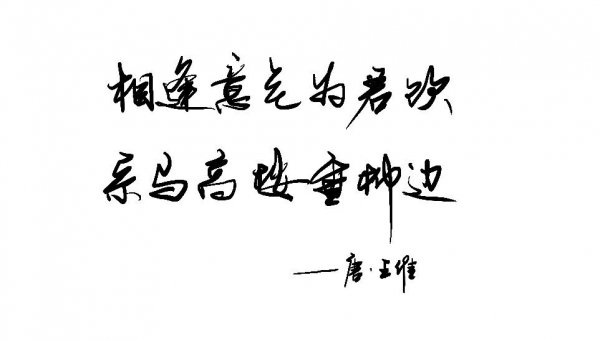 相逢意气为君饮
系马高楼垂柳边
——唐·王维